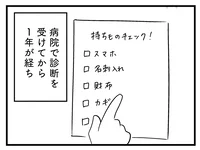 病院で診断を
受けてから
1年が経ち
持ちものチェック!
□スマホ
□名刺入れ
□財布
□カギ
□